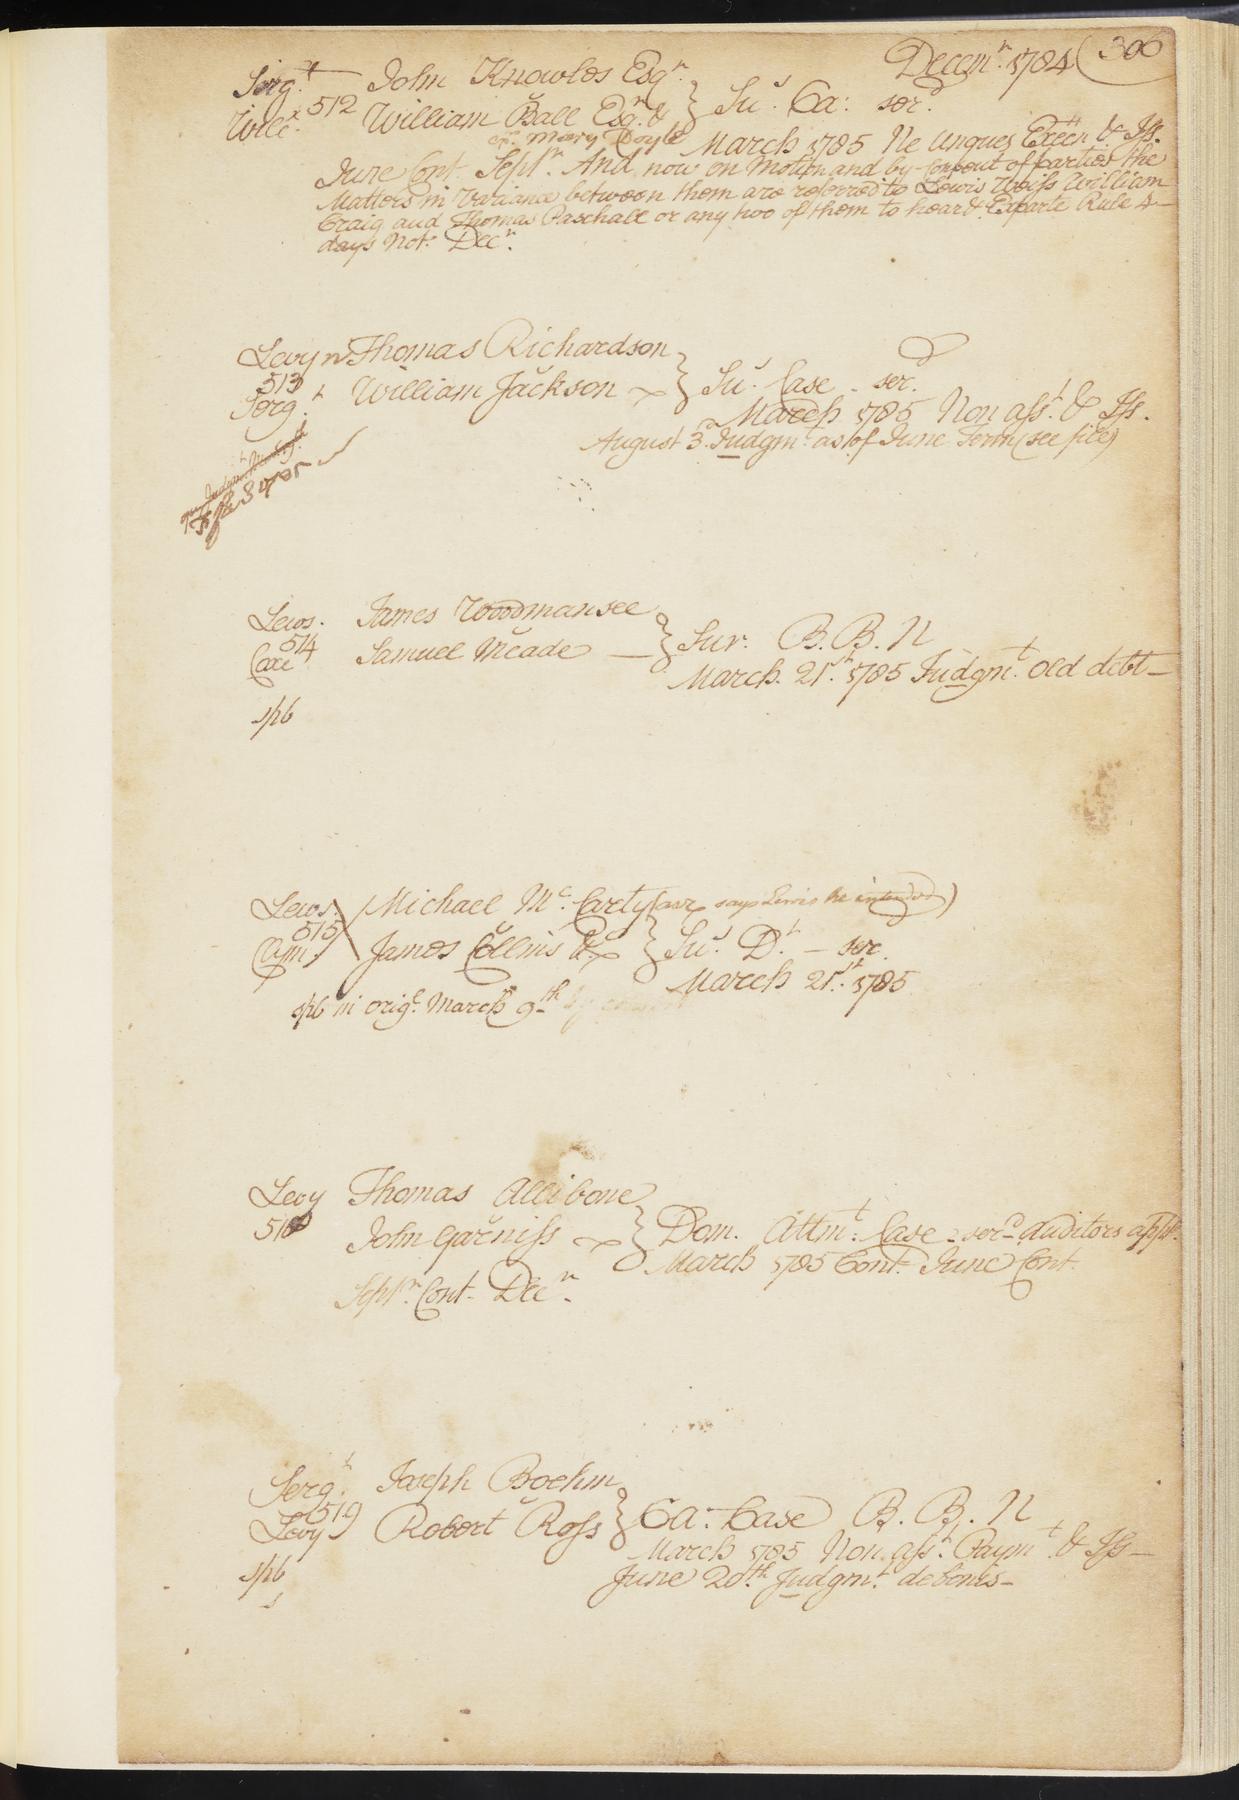 Decem.r 1784 306
Serg.t John Knowles Esq.r
512 v Su.s Ca: ser.d
Wilc.x William Ball Esq.r &
ex. Mary Doyle March 1785 Ne Unques Exec.r & Iss.
June Cont. Sept.r And now on Motion and by Consent of Parties the
Matters in Variance between them are referred to Lewis Weiss William
Craig and Thomas Paschall or any two of them to hear & Exparte Rule 4
days Not. Dec.r
Levy Thomas Richardson
513 v Su.s Case ser.
Serg.t William Jackson
March 1785 Non ass.t & Iss.
August 3.d Judgm.t as of June Term (see file)
Lews. James Woodmansee
514 v Sur. B. B. N
Coxe Samuel Meade
March 21.st 1785 Judgm.t Old debt
spb
Lews. Michael Mc. Carty (ar says Lewis be intended)
515 v Su.s D.t ser.
Cym. James Collins
March 21.st 1785
spb in orig.l March 9.th
Levy Thomas Allibone
v Dom. Attm.t Case ser.d Auditors app.
John Garniss
March 1785 Cont. June Cont.
Sept.r Cont. Dec.r
Serg.t Joseph Boehm
519 v Ca: Case B. B. N
Levy Robert Ross
March 1785 Non ass.t Paym.t & Iss
spb June 20.th Judgm.t de bonis